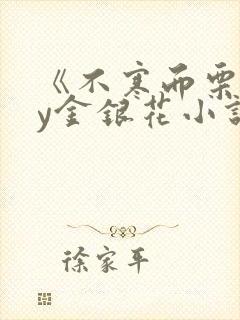 《不寒而栗
y金银花小说
徐家平